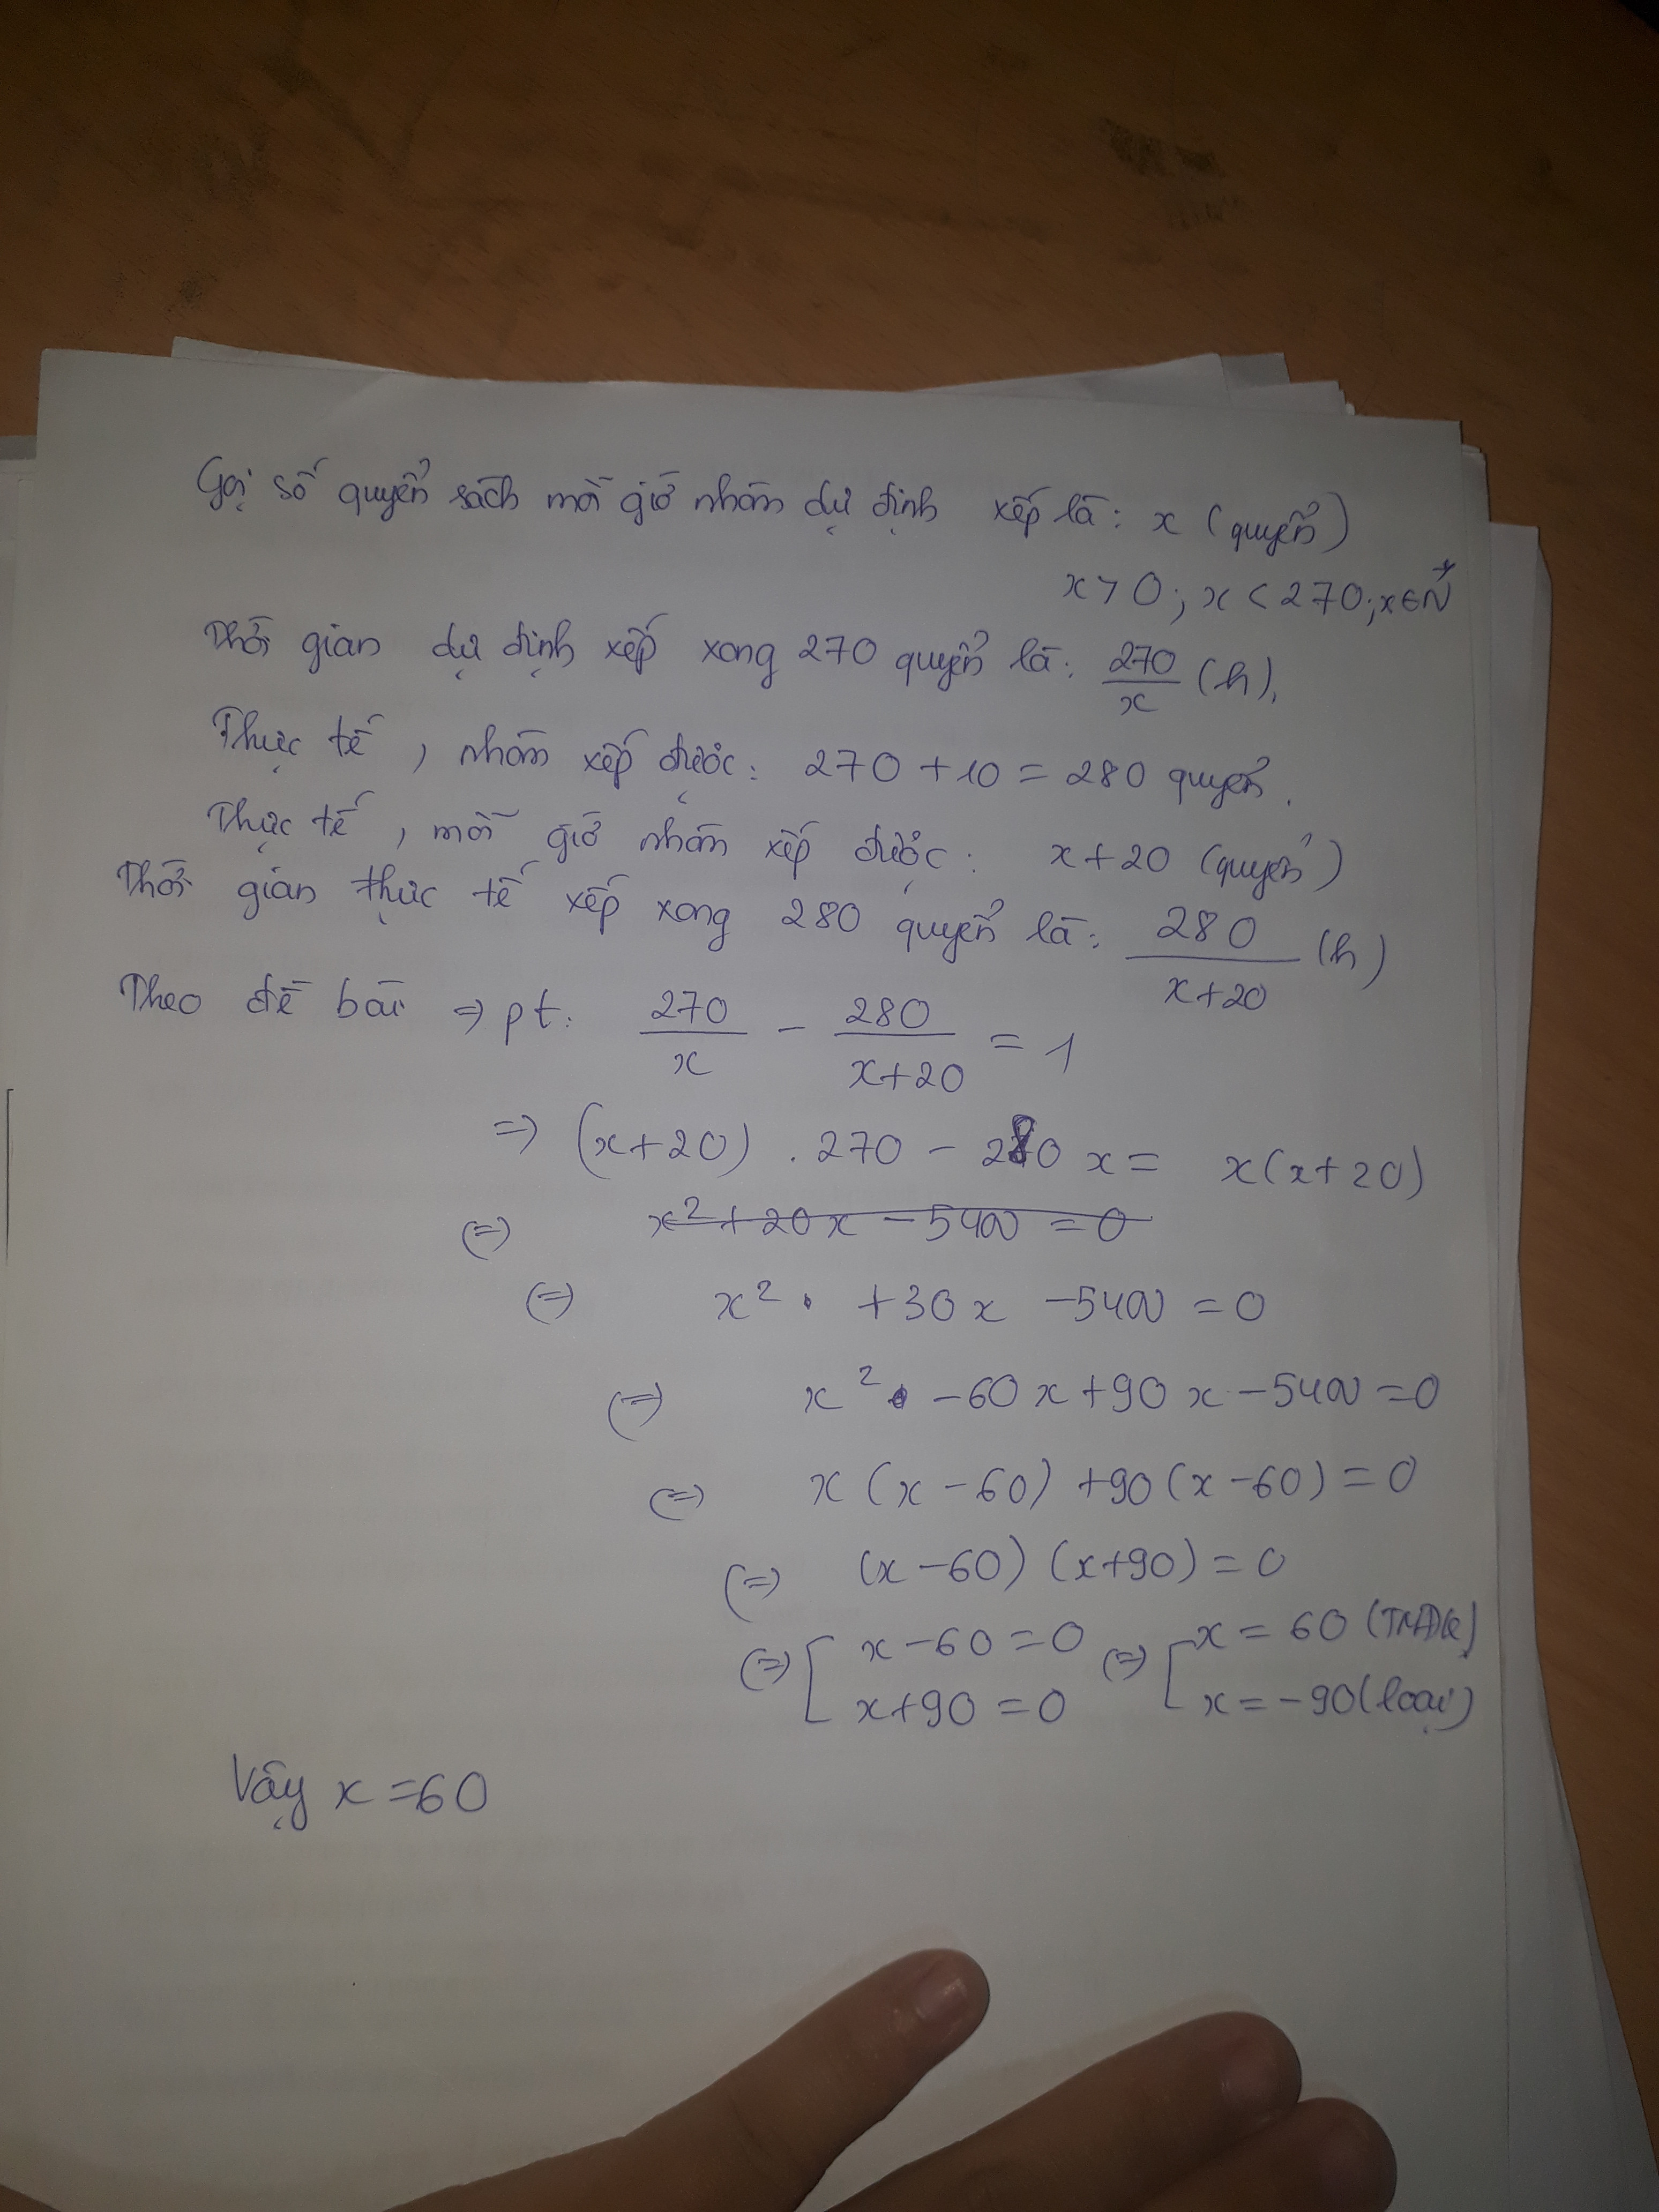 Gọi số quyển sách mỗi giờ nhóm dự định xếp là: x (quyển)
x > 0; x < 270; x ∈ N*
Thời gian dự định xếp xong 270 quyển là: 270/x (h).
Thực tế, nhóm xếp được: 270 + 10 = 280 quyển.
Thực tế, mỗi giờ nhóm xếp được: x + 20 (quyển)
Thời gian thực tế xếp xong 280 quyển là: 280/(x+20) (h)
Theo đề bài => pt: 270/x - 280/(x+20) = 1
=> (x+20) . 270 - 280 x = x(x+20)
(=) x² + 20x - 5400 = 0
(=) x² + 30x - 5400 = 0
(=) x² - 60x + 90x - 5400 = 0
(=) x(x - 60) + 90(x - 60) = 0
(=) (x - 60) (x + 90) = 0
(=) [ x - 60 = 0 (=) [ x = 60 (TMĐK)
x + 90 = 0 x = -90 (loại)
Vậy x = 60